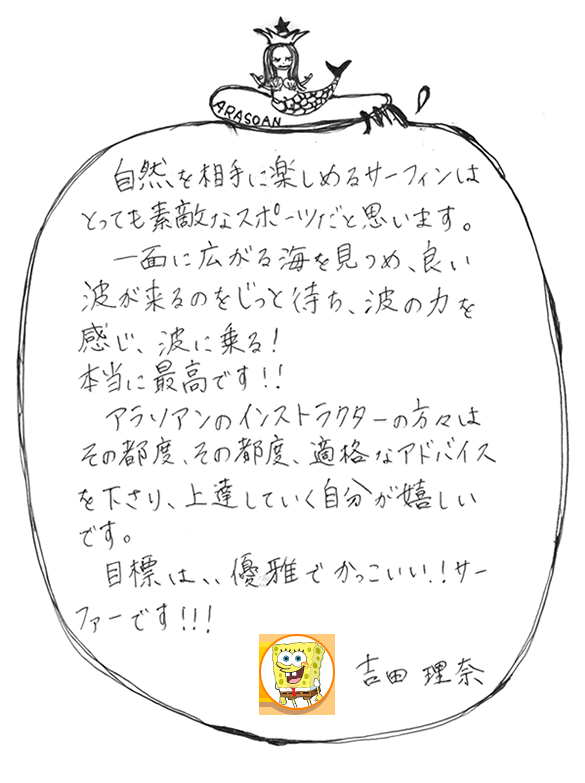 ARASOAN
自然を相手に楽しめるサーフィンは
とっても素敵なスポーツだと思います。
一面に広がる海を見つめ、良い
波が来るのをじっと待ち、波の力を
感じ、波に乗る!
本当に最高です!!
アラソアンのインストラクターの方々は
その都度、その都度、適格なアドバイス
を下さり、上達していく自分が嬉しい
です。
目標は、、優雅でかっこいい!!サー
ファーです!!!
吉田 理奈